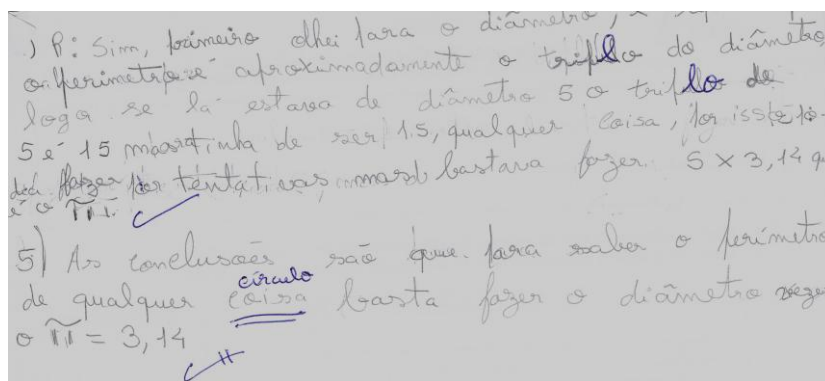 ) R: Sim, primeiro olhei para o diâmetro,
o perimetro é aproximadamente o triplo do diâmetro
logo se lá estava de diâmetro 5 o triplo de
5 é 15 mas tinha de ser 15, qualquer coisa, por isso po-
dia fazer por tentativas mas bastava fazer 5 X 3,14 q
é o π.
5) As conclusões são que para saber o perímetro
círculo
de qualquer coisa basta fazer o diâmetro vezes
o π = 3,14